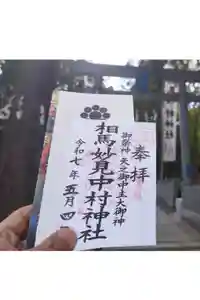 奉拝
御祭神 天之御中主大御神
相馬妙見中村神社
令和七年五月四日